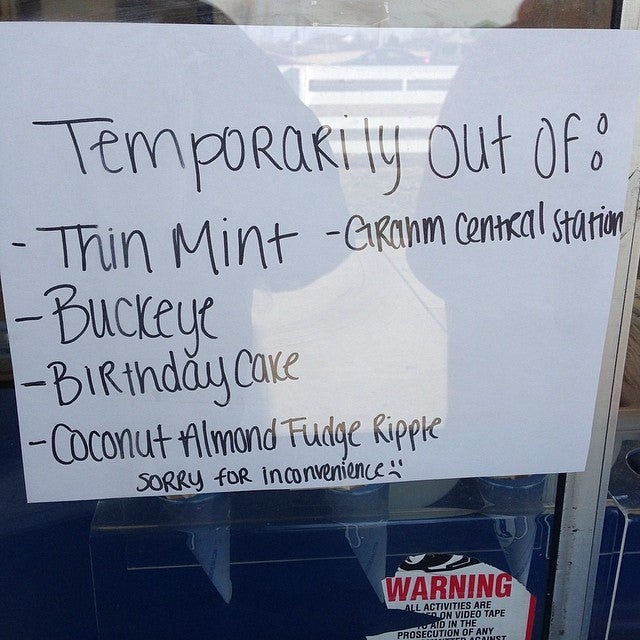 TEMPORARily OUt OF:
- Thin Mint - GRAhm CENtRAl StAtion
- BuckEyE
- BiRthday Cake
- Coconut Almond Fudge Ripple
SORRY FOR inconvenience :(
WARNING
ALL ACTIVITIES ARE
ON VIDEO TAPE
TO AID IN THE
PROSECUTION OF ANY
AGAINST